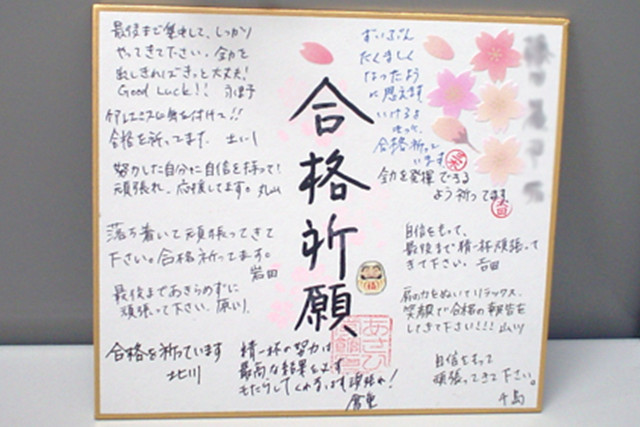 合格祈願
最後まで集中して、しっかり
やってきて下さい。全力を
出しきればきっと大丈夫!
Good Luck!!
身を付けて!!
合格を祈ってます。
努力した自分に自信を持って!
頑張れ、応援してます。丸山
落ち着いて頑張ってきて
下さい。合格祈ってます。
岩田
最後まであきらめずに
頑張って下さい。原川
合格を祈っています
北川
精一杯の努力は
最高な結果を必ず
もたらしてくれます頑張れ!
ずいぶん
たくましく
なったよう
に思えます
いけるよ
合格祈って
います
全力を発揮できる
よう祈ってます
自信をもって、
最後まで精一杯頑張って
きて下さい。吉田
肩の力をぬいてリラックス、
笑顔で合格の報告を
してきて下さい!!!
自信をもって
頑張ってきて下さい。
千島
あさひ